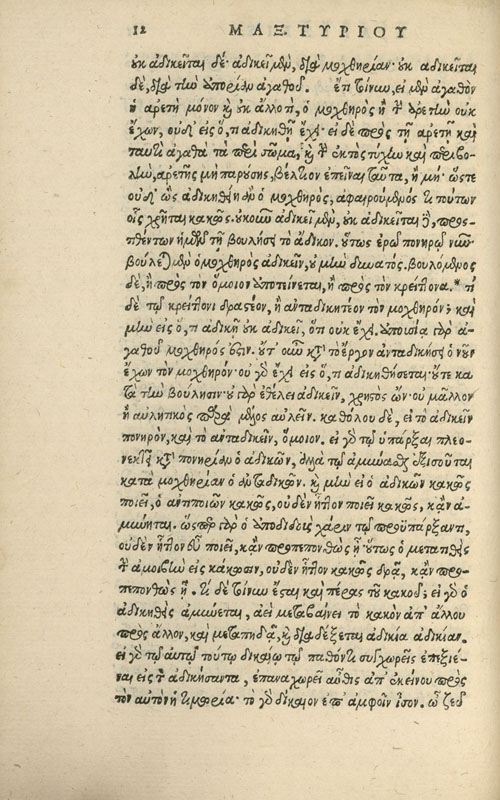 12 ΜΑΞ. ΤΥΡΙΟΥ
οὐκ ἀδικεῖται δέ· ἀδικεῖ μὲν, διὰ μοχθηρίαν· οὐκ ἀδικεῖται
δὲ, διὰ τὴν ἀπορίαν ἀγαθοῦ. ἔτι τοίνυν, εἰ μὲν ἀγαθὸν
ἡ ἀρετὴ μόνον καὶ οὐκ ἄλλο τι, ὁ μοχθηρὸς ἢ τὴν ἀρετὴν οὐκ
ἔχων, οὐδ' εἰς ὅ, τι ἀδικηθῇ ἔχει· εἰ δὲ πρὸς τῇ ἀρετῇ καὶ
ταυτὶ ἀγαθὰ τὰ περὶ σῶμα, καὶ τὴν ἐκτὸς τύχην καὶ περιβο-
λὴν, ἀρετῆς μὴ παρούσης, βέλτιον ἐπεῖναι ταῦτα, ἢ μή· ὥστε
οὐδ' ὣς ἀδικηθείη ἂν ὁ μοχθηρὸς, ἀφαιρούμενός τι τούτων
οἷς χρῆται κακῶς. οὐκοῦν ἀδικεῖ μὲν, οὐκ ἀδικεῖται δὲ, προς-
τιθέντων ἡμῶν τῇ βουλήσει τὸ ἄδικον. οὕτως ἐρῶ πονηρῷ νῦν·
βούλεται μὲν ὁ μοχθηρὸς ἀδικεῖν, οὐ μὴν δυνατός. βουλόμενος
δὲ, ἢ πρὸς τὸν ὅμοιον ἀποτείνεται, ἢ πρὸς τὸν κρείττονα.* τί
δὲ τῷ κρείττονι δραστέον, ἢ ἀνταδικητέον τὸν μοχθηρόν; καὶ
μὴν εἰς ὅ, τι ἀδικῇ οὐκ ἀδικεῖ, ὅτι οὐκ ἔχει. ἀπουσίᾳ γὰρ ἀ-
γαθοῦ μοχθηρός ἐστιν. οὔτ' οὖν κατὰ τὸ ἔργον ἀνταδικήσει ὁ νοῦν
ἔχων τὸν μοχθηρόν· οὐ γὰρ ἔχει εἰς ὅ, τι ἀδικηθήσεται· οὔτε κα
τὰ τὴν βούλησιν· οὐ γὰρ ἐθέλει ἀδικεῖν, χρηστὸς ὤν· οὐ μᾶλλον
ἢ αὐλητικὸς παρὰ μέλος αὐλεῖν. καθόλου δὲ, εἰ τὸ ἀδικεῖν
πονηρὸν, καὶ τὸ ἀνταδικεῖν, ὅμοιον. εἰ γὰρ τῷ ὑπάρξαι πλεο-
νεκτεῖ κατὰ πονηρίαν ὁ ἀδικῶν, ἀλλὰ τῷ ἀμύνασθαι ἐξισοῦται
κατὰ μοχθηρίαν ὁ ἀνταδικῶν. καὶ μὴν εἰ ὁ ἀδικῶν κακῶς
ποιεῖ, ὁ ἀντιποιῶν κακῶς, οὐδὲν ἧττον ποιεῖ κακῶς, κἂν ἀ-
μύνηται. ὥσπερ γὰρ ὁ ἀποδιδοὺς χάριν τῷ προϋπάρξαντι,
οὐδὲν ἧττον εὖ ποιεῖ, κἂν προπεπονθὼς ᾖ· οὕτως ὁ μετατιθεὶς
τὴν ἀμοιβὴν εἰς κάκωσιν, οὐδὲν ἧττον κακῶς δρᾷ, κἂν προ-
πεπονθὼς ᾖ. τί δὲ τοίνυν ἔσται καὶ πέρας τοῦ κακοῦ; εἰ γὰρ ὁ
ἀδικηθεὶς ἀμύνεται, ἀεὶ μεταβαίνει τὸ κακὸν ἀπ' ἄλλου
πρὸς ἄλλον, καὶ μεταπηδᾷ, καὶ διαδέξεται ἀδικία ἀδικίαν.
εἰ γὰρ τῷ αὐτῷ τούτῳ δικαίῳ τῷ παθόντι συγχωρεῖς ἐπεξιέ-
ναι εἰς τὸν ἀδικήσαντα, ἐπαναχωρεῖ αὖθις ἀπ' ἐκείνου πρὸς
τὸν αὐτὸν ἡ τιμωρία· τὸ γὰρ δίκαιον ἐπ' ἀμφοῖν ἴσον. ὦ ζεῦ